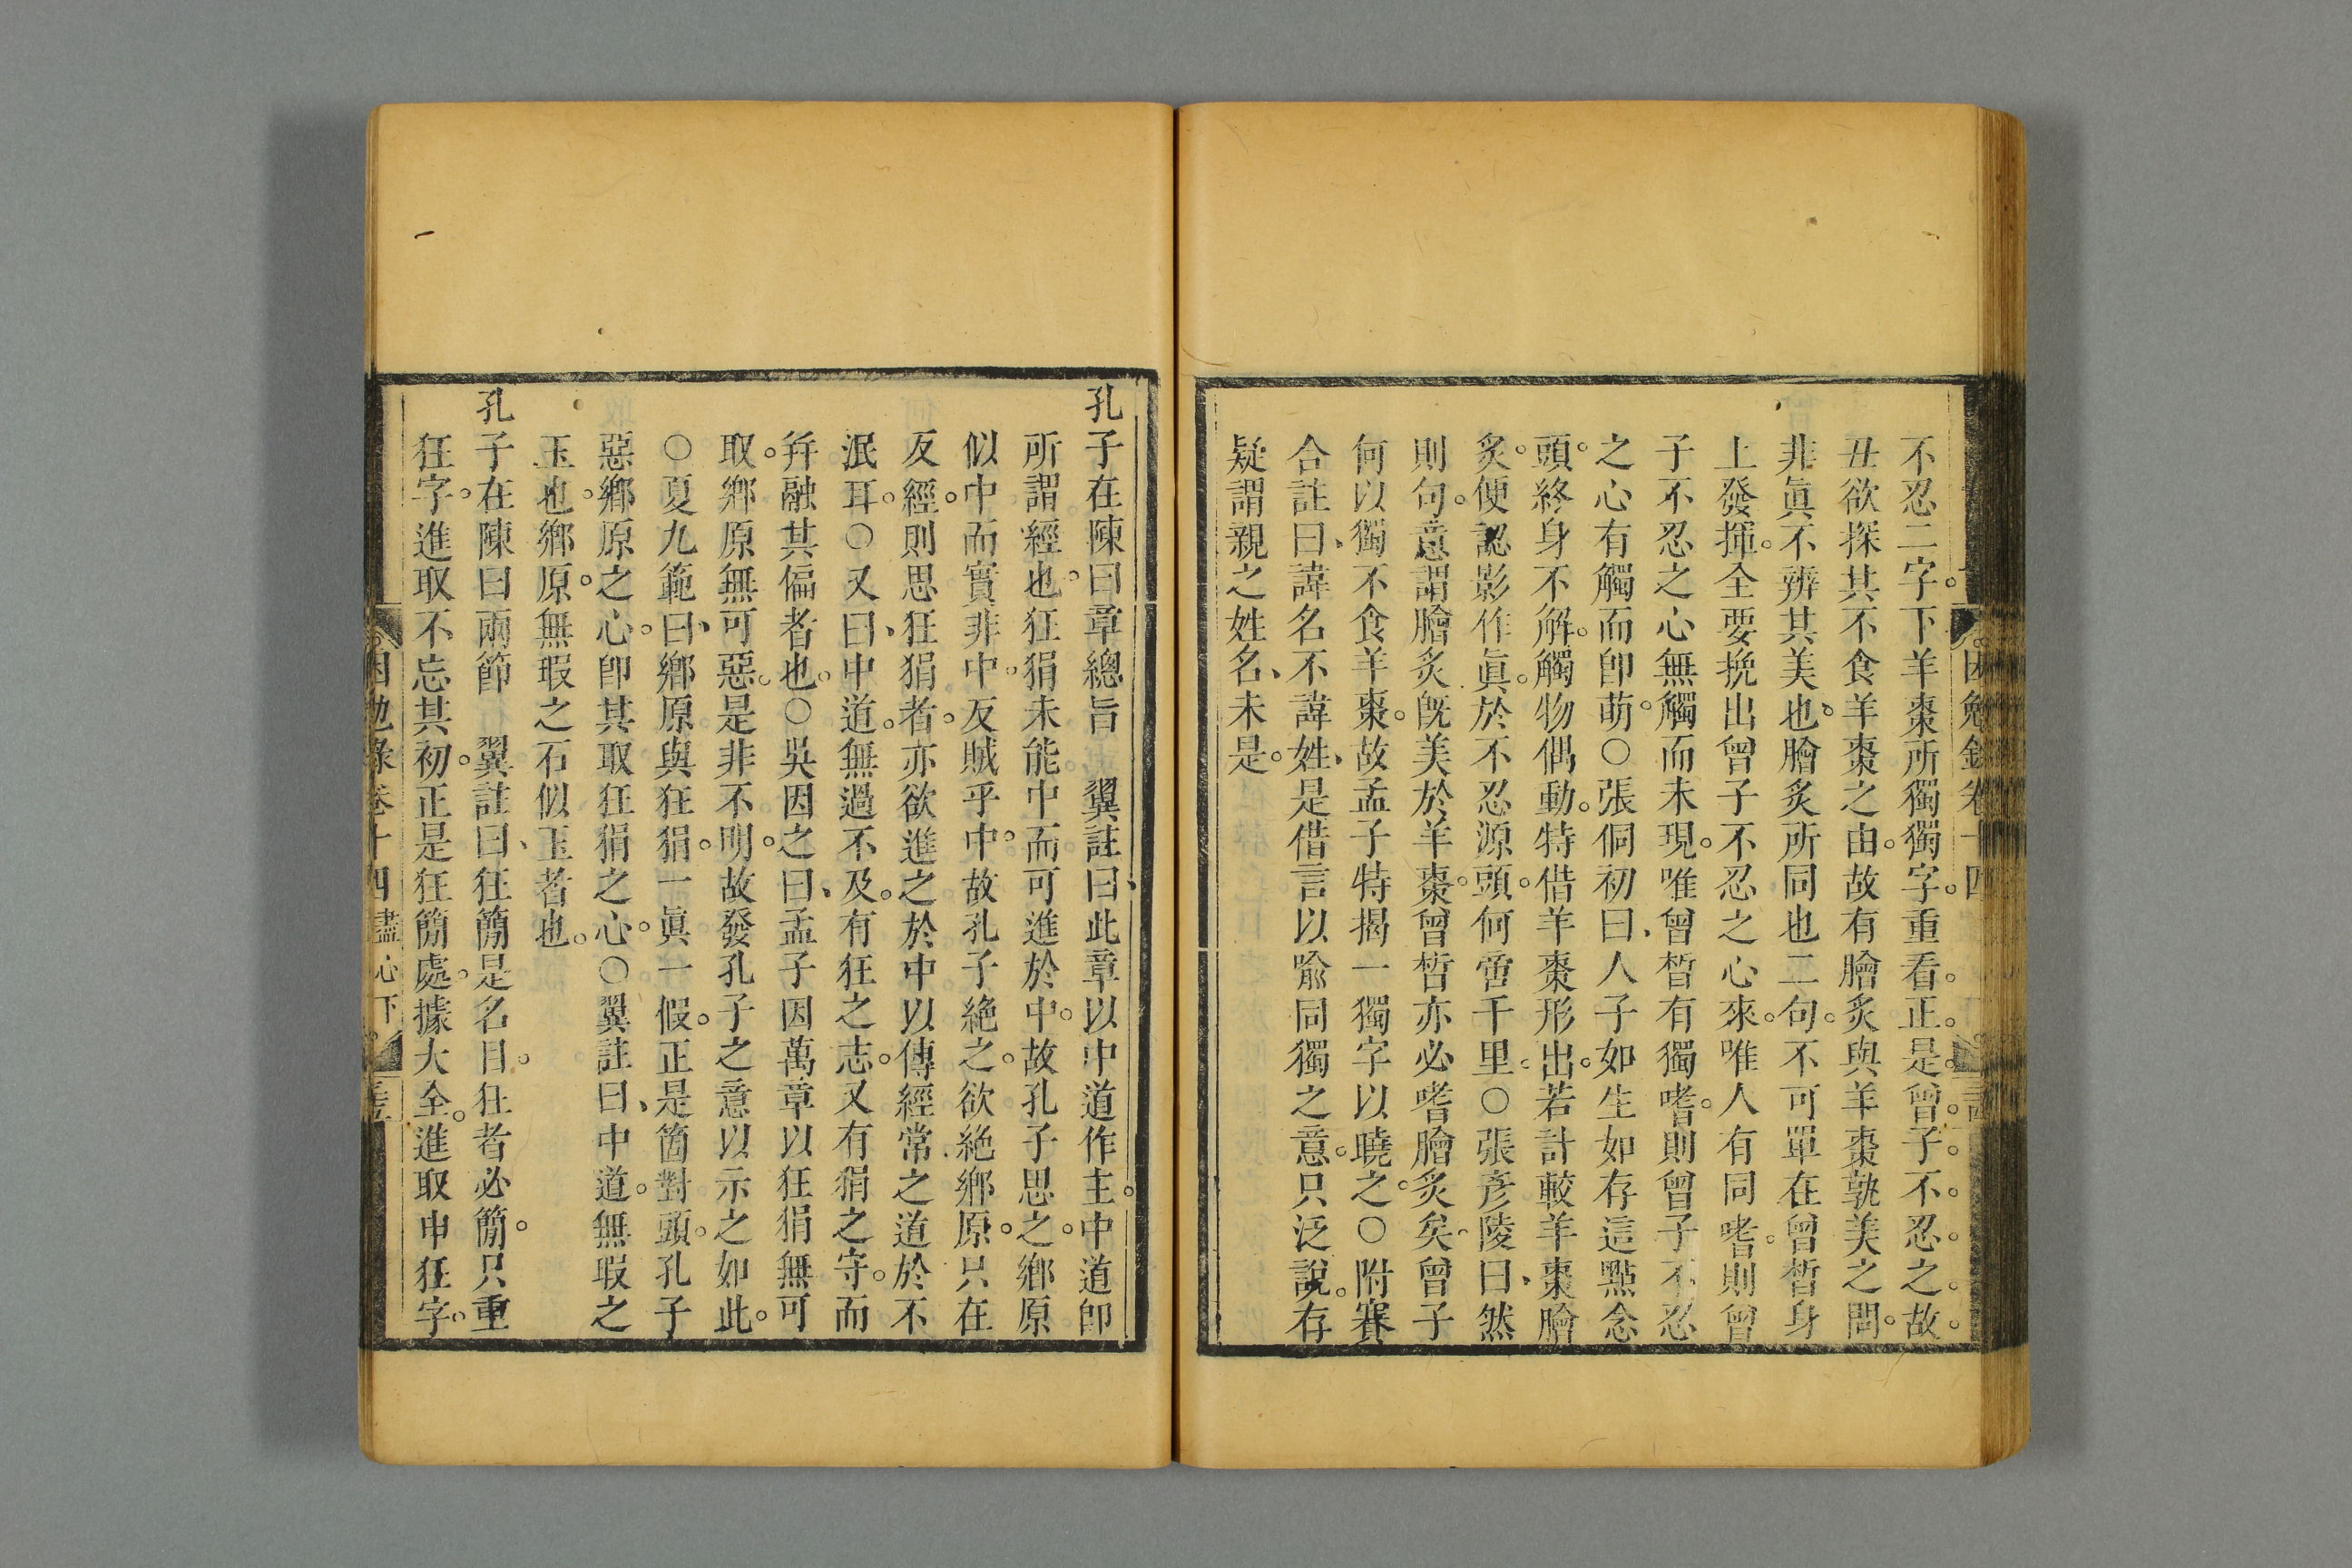 不忍二字。下羊棗所獨獨字。重看。正是。曾。子。不。忍。之。故。
丑欲探其不食羊棗之由。故有膾炙與羊棗孰美之問。
非眞不辨其美也、膾炙所同也二句。不可單在曾晳身
上發揮。全要挽出曾子不忍之心來。唯人有同嗜。則曾
子不忍之心無觸而未現。唯曾晳有獨嗜。則曾子不忍
之心有觸而卽萌。○張侗初曰、人子如生如存這點念
頭。終身不解。觸物偶動。特借羊棗形出。若計較羊棗膾
炙。便認影作眞。於不忍源頭。何啻千里。○張彥陵曰、然
則句。意謂膾炙旣美於羊棗。曾晳亦必嗜膾炙矣。曾子
何以獨不食羊棗。故孟子特揭一獨字以曉之。○附賽
合註曰、諱名不諱姓、是借言以喩同獨之意。只泛說。存
疑謂親之姓名、未是。
孔子在陳曰章總旨　翼註曰、此章以中道作主。中道卽
所謂經也。狂狷未能中而可進於中。故孔子思之。鄕原
似中而實非中。反賊乎中。故孔子絶之。欲絶鄕原。只在
反經。則思狂狷者。亦欲進之於中以傳經常之道於不
泯耳。○又曰、中道。無過不及。有狂之志。又有狷之守。而
幷融其偏者也。○吳因之曰、孟子因萬章以狂狷無可
取。鄕原無可惡。是非不明。故發孔子之意以示之如此。
○夏九範曰、鄕原與狂狷。一眞一假。正是箇對頭。孔子
惡鄕原之心。卽其取狂狷之心。○翼註曰、中道。無瑕之
玉也。鄕原。無瑕之石似玉者也。
孔子在陳曰兩節　翼註曰、狂簡是名目。狂者必簡。只重
狂字。進取不忘其初。正是狂簡處。據大全。進取申狂字。
困勉錄卷十四 盡心下